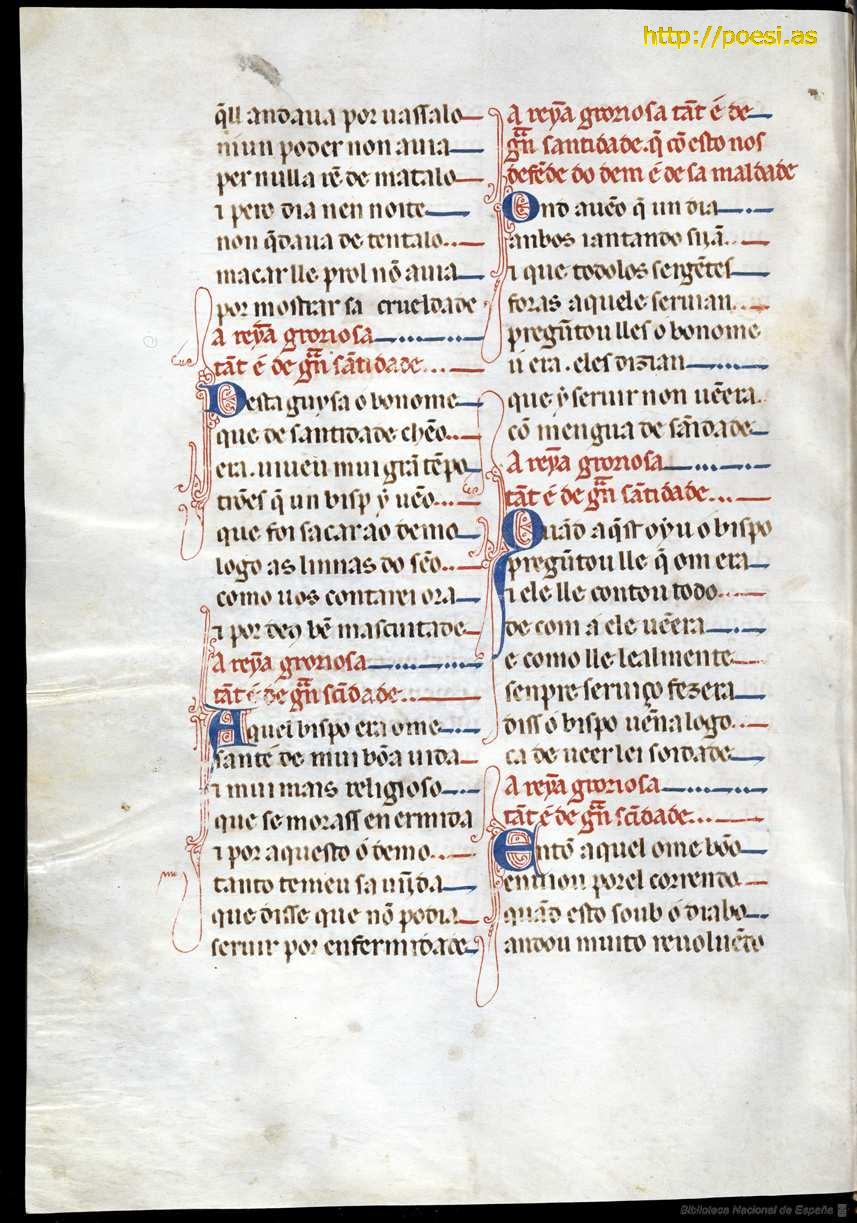 http://poesi.as
q̃ll andaua por uassalo
niun poder non auia
per nulla rẽ de matalo
ı pero dia nen noite
non q̃daua de tentalo..
macar lle prol nõ auia
por mostrar sa crueldade
A reyã grorıosa
tãt é de grãn sãtidade...
Desta guysa o bonome
que de santidade chẽo..
era. uiueu mui grã tẽpo
trões q̃ un bisp y uẽo...
que foi sacar ao demo
logo as linnas do sẽo..
como uos contarei ora
ı por deꝯ bẽ mascuitade
A reyã grorıosa
tãt é de grãn sc̃idade..
Aquel bispo era ome
santé de mui bõa uida
ı mui mais religioso
que se morass en ermida
ı por aquesto o demo...
tanto temeu sa uĩjda
que disse que nõ podia
seruir por enfermidade
A reyã grorıosa tãt é de
grãn santidade. q̃ cõ esto nos
defẽde do dem é de sa maldade
Ond auẽo q̃ un dia
anbos iantando sijã..
ı que todolos sergẽtes
foras aquele seruian
pregũtou lles o bonome
ú era. eles dizian
que ý seruir non uẽera.
cõ mengua de sãidade
A reyã grorıosa
tãt é de grãn sãtidade...
Quãd aq̃st oyu o bispo
pregũtou lle q̃ om era
ı ele lle contou todo
de com a ele uẽera
e como lle lealmente
senpre seruiço fezera
diss o bispo uẽna logo
ca de ueer lei soidade
A reyã grorıosa
tãt é de grãn sc̃idade...
Entõ aquel ome bõo
enuiou por el correndo
quãd esto soub o diabo
andou muito reuoluẽdo
Biblioteca Nacional de España